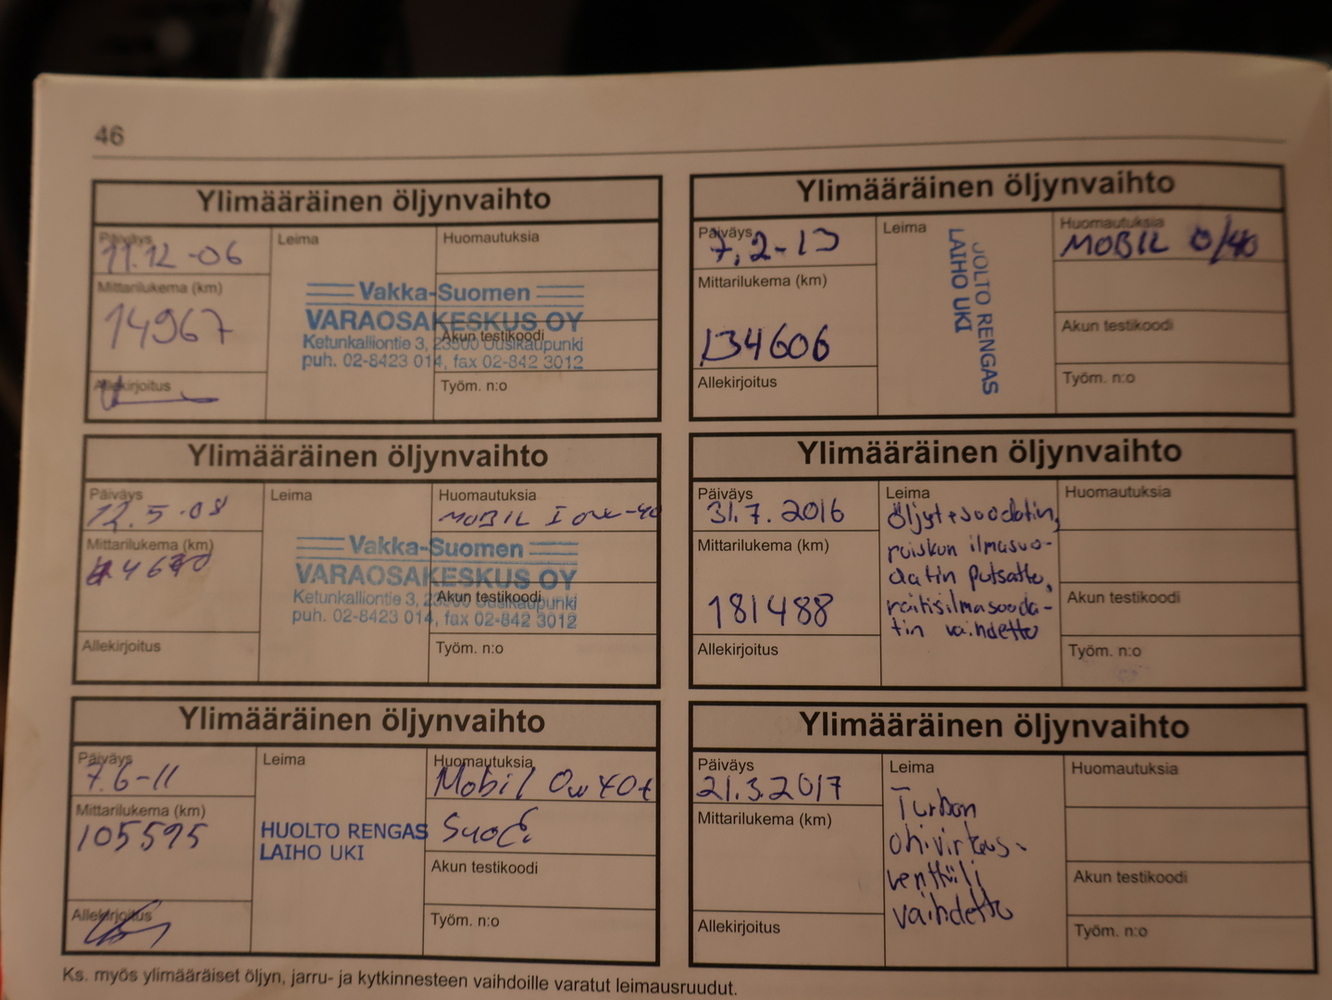 46
Ylimääräinen öljynvaihto
Päiväys
11.12-06
Leima
Huomautuksia
Mittarilukema (km)
14967
Vakka-Suomen
VARAOSAKESKUS OY
Ketunkalliontie 3, 23500 Uusikaupunki
puh. 02-8423 014, fax 02-842 3012
Akun testikoodi
Allekirjoitus
Työm. n:o
Ylimääräinen öljynvaihto
Päiväys
7.2-13
Leima
HUOLTO RENGAS
LAIHO UKI
Huomautuksia
MOBIL 0/40
Mittarilukema (km)
134606
Akun testikoodi
Allekirjoitus
Työm. n:o
Ylimääräinen öljynvaihto
Päiväys
12.5-08
Leima
Huomautuksia
MOBIL 1 0W-40
Mittarilukema (km)
Vakka-Suomen
VARAOSAKESKUS OY
Ketunkalliontie 3, 23500 Uusikaupunki
puh. 02-8423 014, fax 02-842 3012
Akun testikoodi
Allekirjoitus
Työm. n:o
Ylimääräinen öljynvaihto
Päiväys
31.7.2016
Leima
Öljyt+suodatin,
ruiskun ilmasuo-
datin putsattu,
raitisilmasuoda-
tin vaihdettu
Huomautuksia
Mittarilukema (km)
181488
Akun testikoodi
Allekirjoitus
Työm. n:o
Ylimääräinen öljynvaihto
Päiväys
7.6-11
Leima
Huomautuksia
Mobil 0w40+
Mittarilukema (km)
105595
HUOLTO RENGAS
LAIHO UKI
Akun testikoodi
Allekirjoitus
Työm. n:o
Ylimääräinen öljynvaihto
Päiväys
21.3.2017
Leima
Turbon
ohivirtaus-
venttiili
vaihdettu
Huomautuksia
Mittarilukema (km)
Akun testikoodi
Allekirjoitus
Työm. n:o
Ks. myös ylimääräiset öljyn, jarru- ja kytkinnesteen vaihdoille varatut leimausruudut.